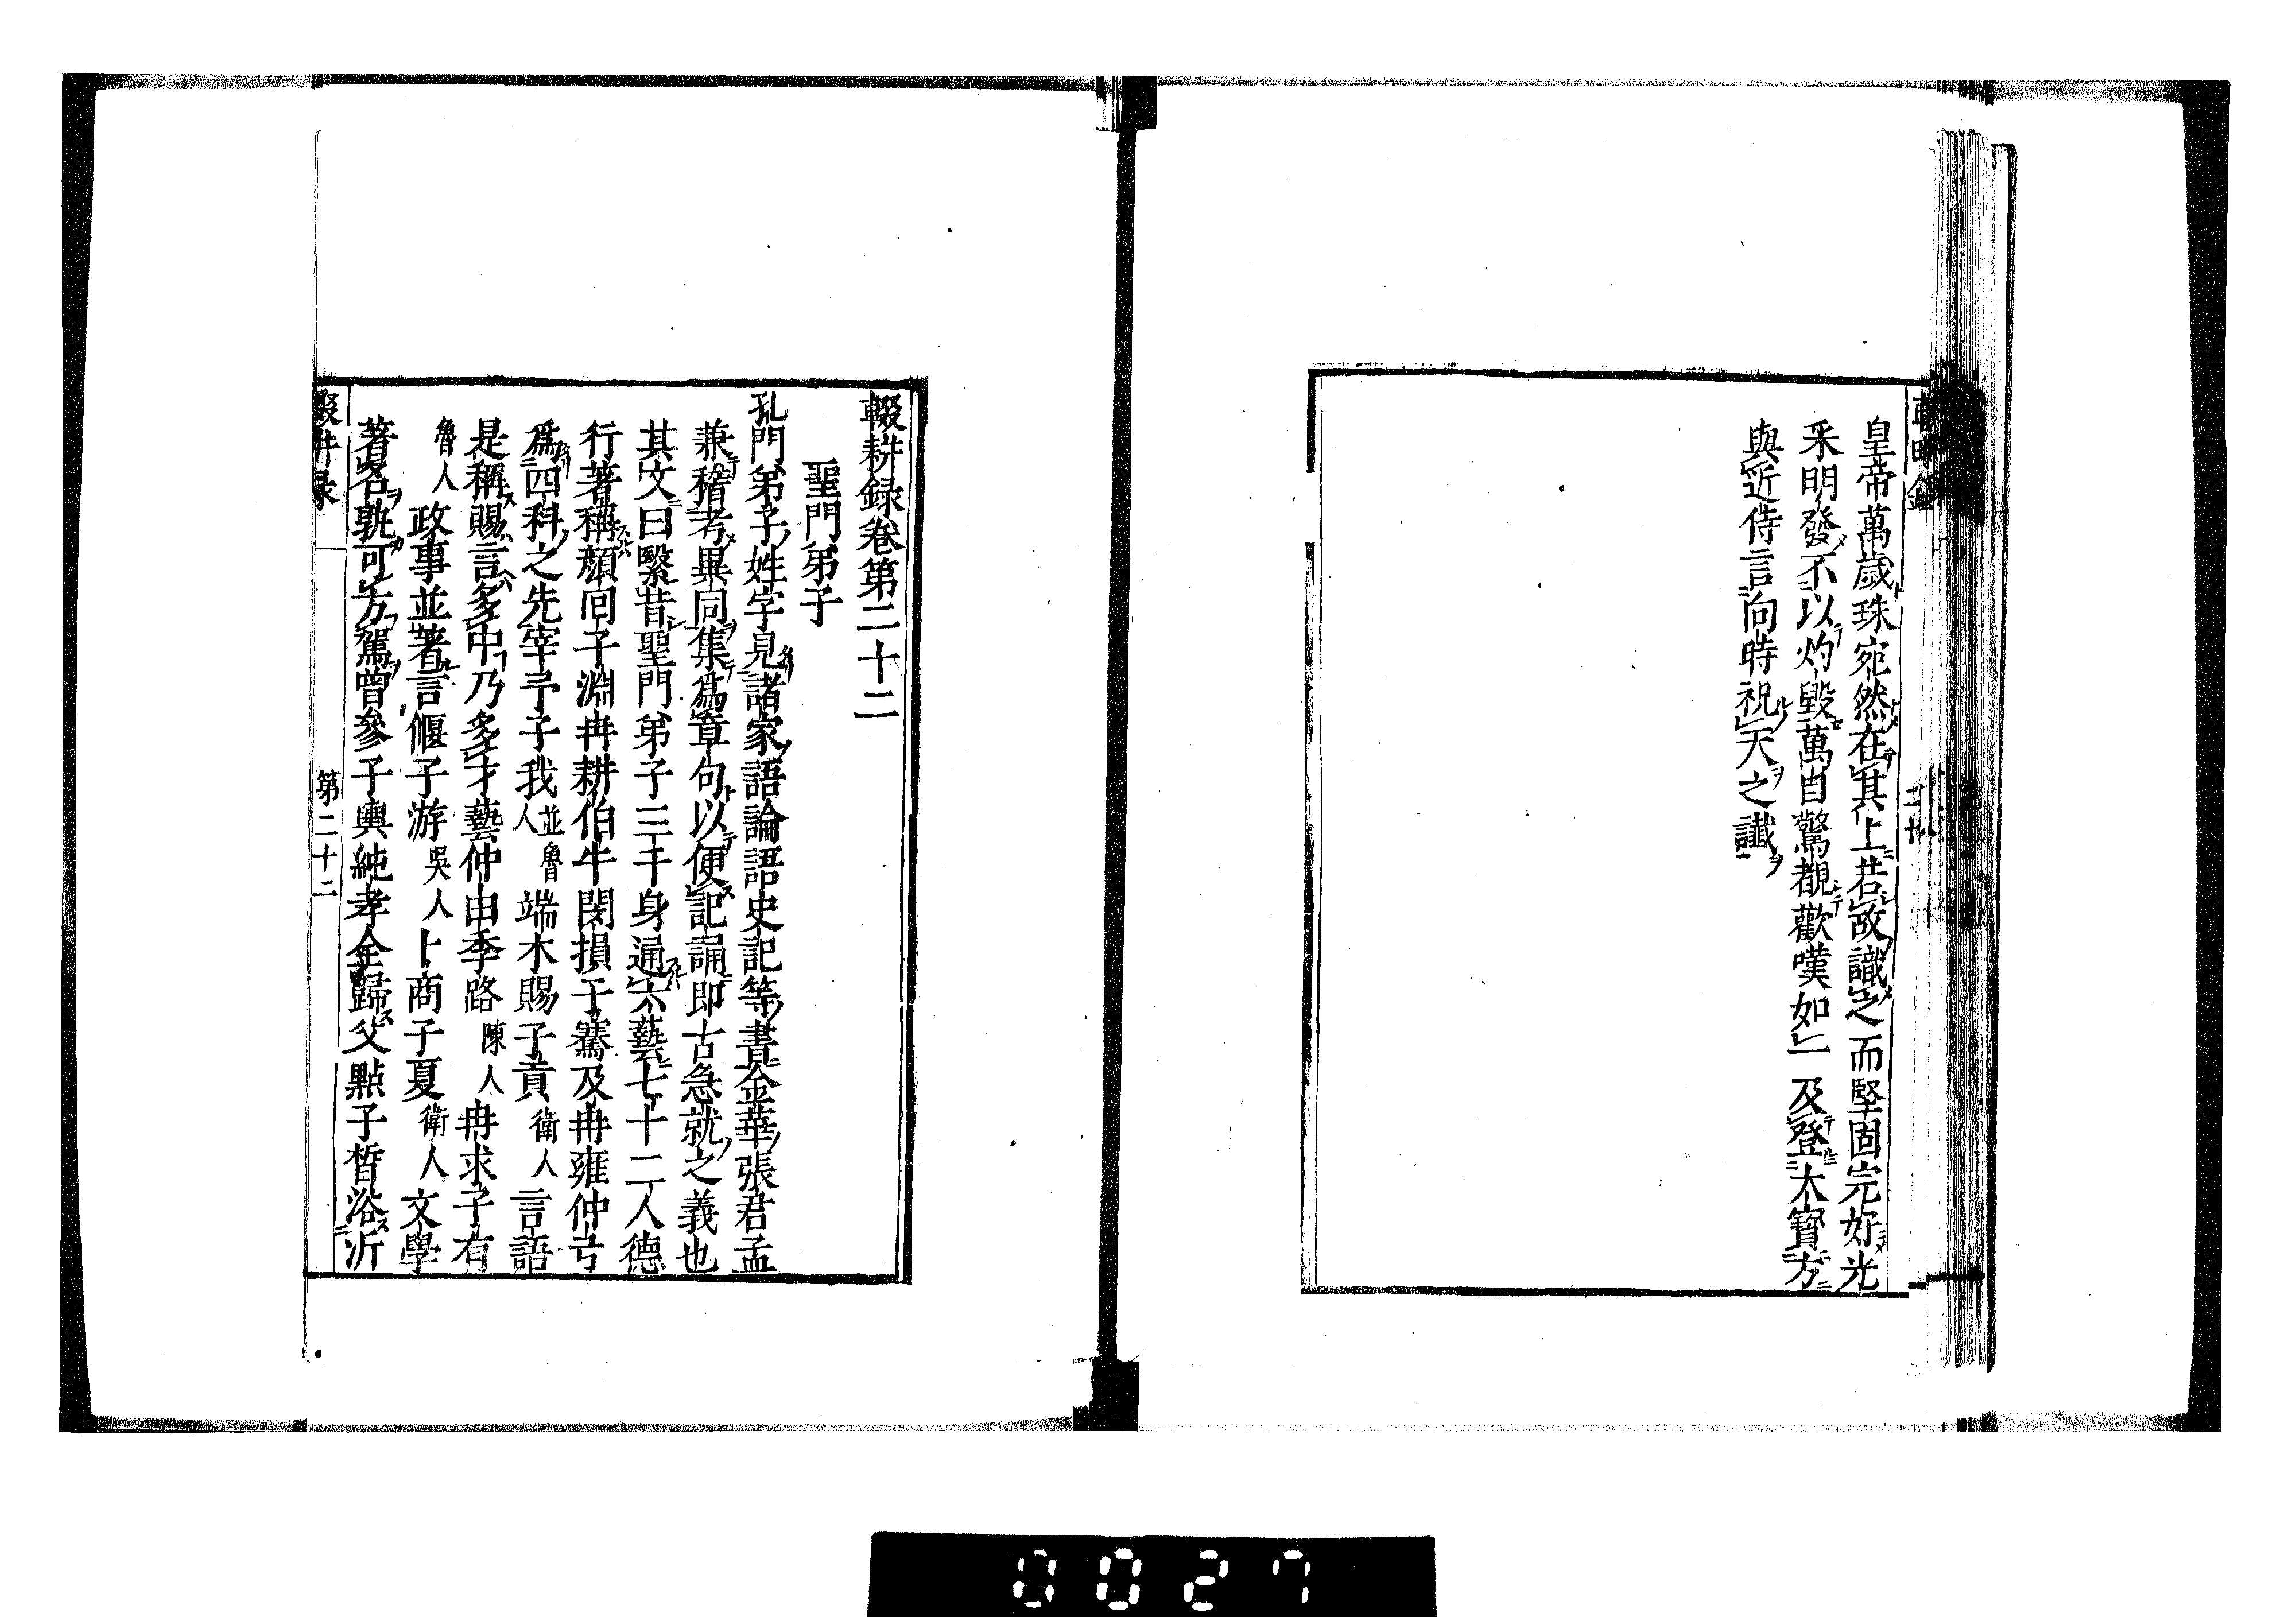 皇帝萬歲珠宛然在其上若故識之而堅固完好光
釆明發不以灼毀萬目驚覩歡嘆如一及登大寶方
與近侍言向時祝天之讖
輟耕録卷第二十二
聖門弟子
孔門弟子姓字見諸家語論語史記等書金華張君孟
兼稽考異同集爲章句以便記誦即古急就之義也
其文曰繄昔聖門弟子三千身通六藝七十二人德
行著稱顔回子淵冉耕伯牛閔損子騫及冉雍仲弓
爲四科之先宰予子我並魯人端木賜子貢衛人言語
是稱賜言多中乃多才藝仲由季路陳人冉求子有
魯人政事並著言偃子游吳人卜商子夏衛人文學
著名孰可方駕曾參子輿純孝全歸父點子晳浴沂
輟耕录 第二十二
0027